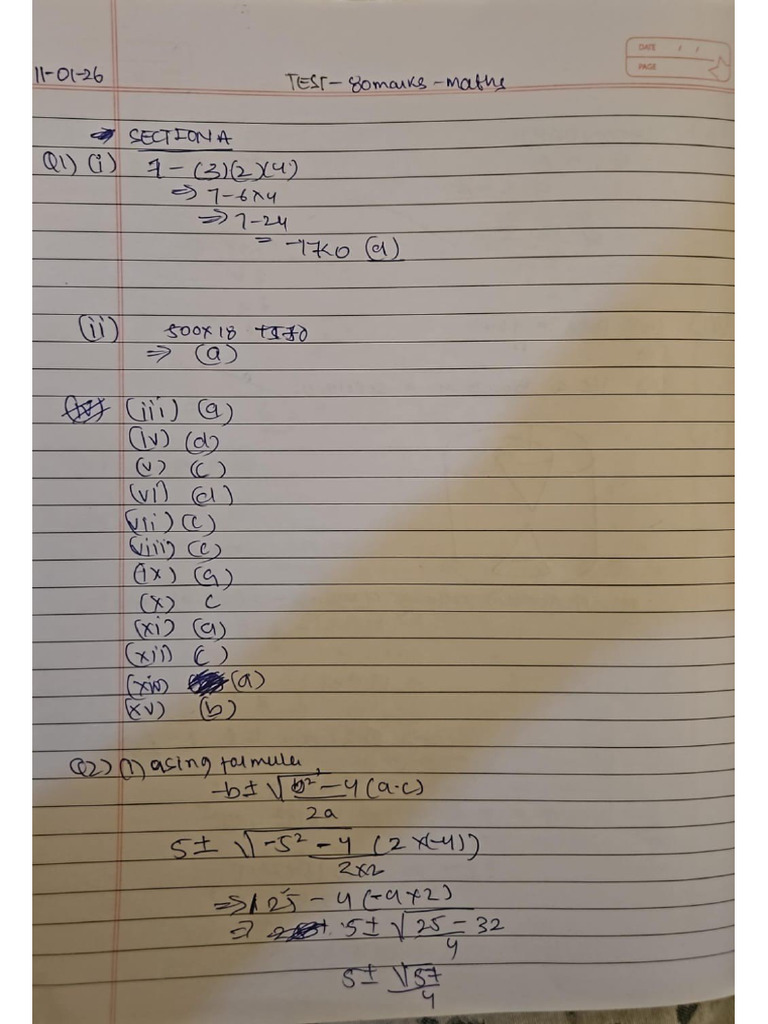 DATE / /
PAGE
11-01-26
TEST - 80marks - maths
→ SECTION A
Q1) (i) 7 - (3)(2)(4)
⇒ 7-6x4
⇒ 7-24
= -17<0 (a)
(ii) 500x18
⇒ (a)
(iii) (a)
(iv) (d)
(v) (c)
(vi) (d)
(vii) (c)
(viii) (c)
(ix) (a)
(x) c
(xi) (a)
(xii) (c)
(xiv) (a)
(xv) (b)
Q2) (1) using formula,
-b ± √b² - 4(a.c)
2a
5 ± √-5² - 4 (2x(-4))
2x2
⇒ 25 - 4(-4x2)
⇒ 5 ± √25 - 32
4
5 ± √57
4